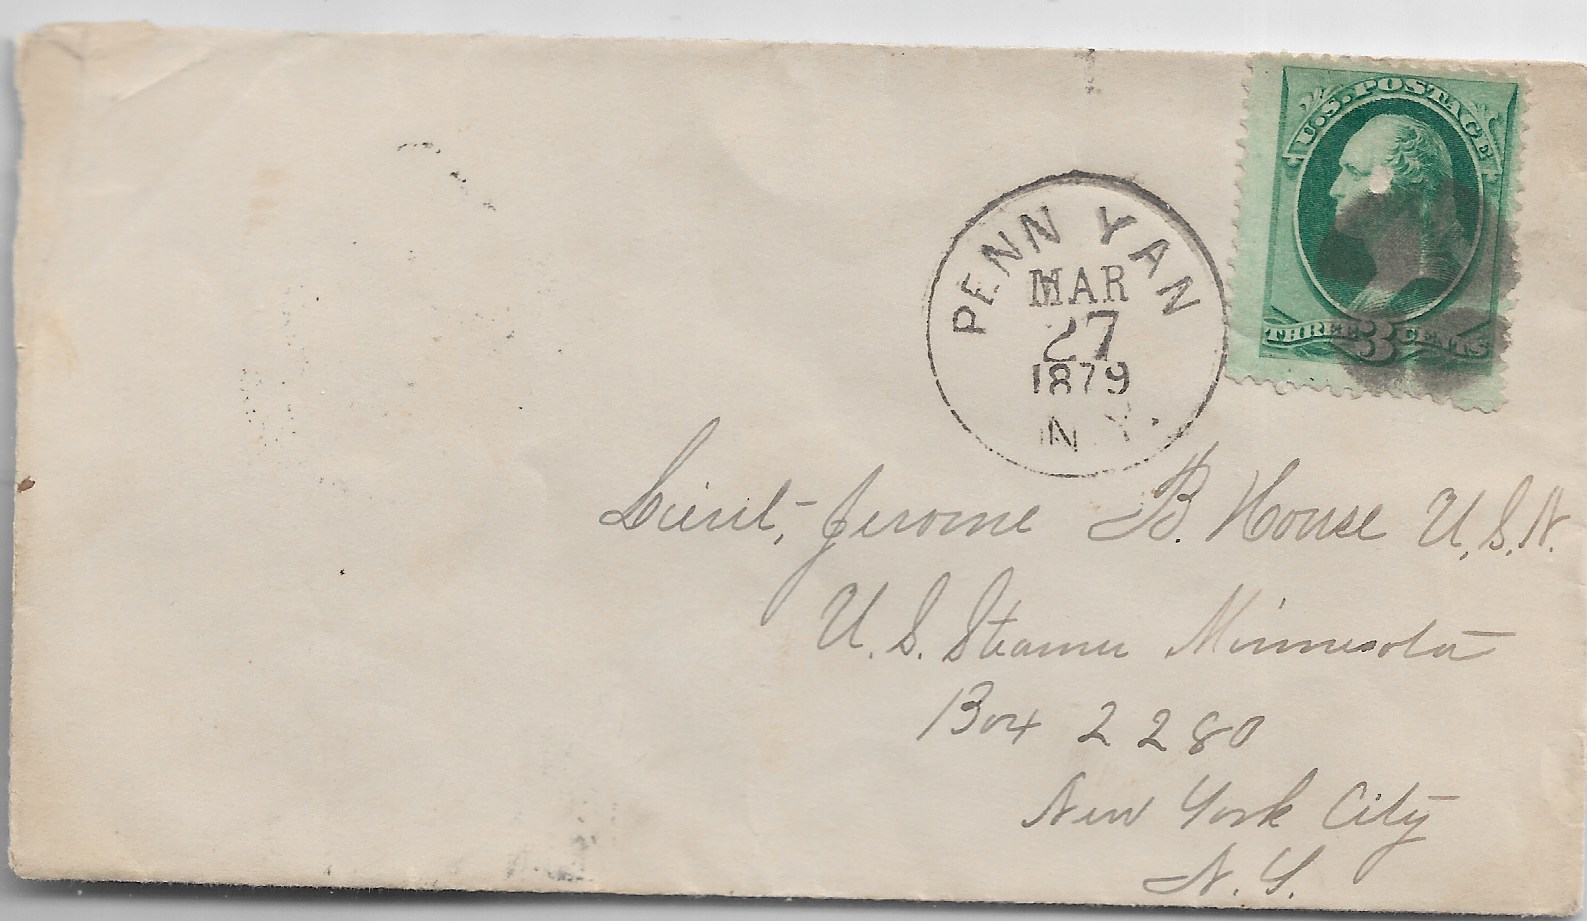 U.S. POSTAGE
THREE 3 CENTS
PENN YAN
MAR
27
1879
N.Y.
Lieut, Jerome B. House U.S.N.
U.S. Steamer Minnesota
Box 2280
New York City
N.Y.